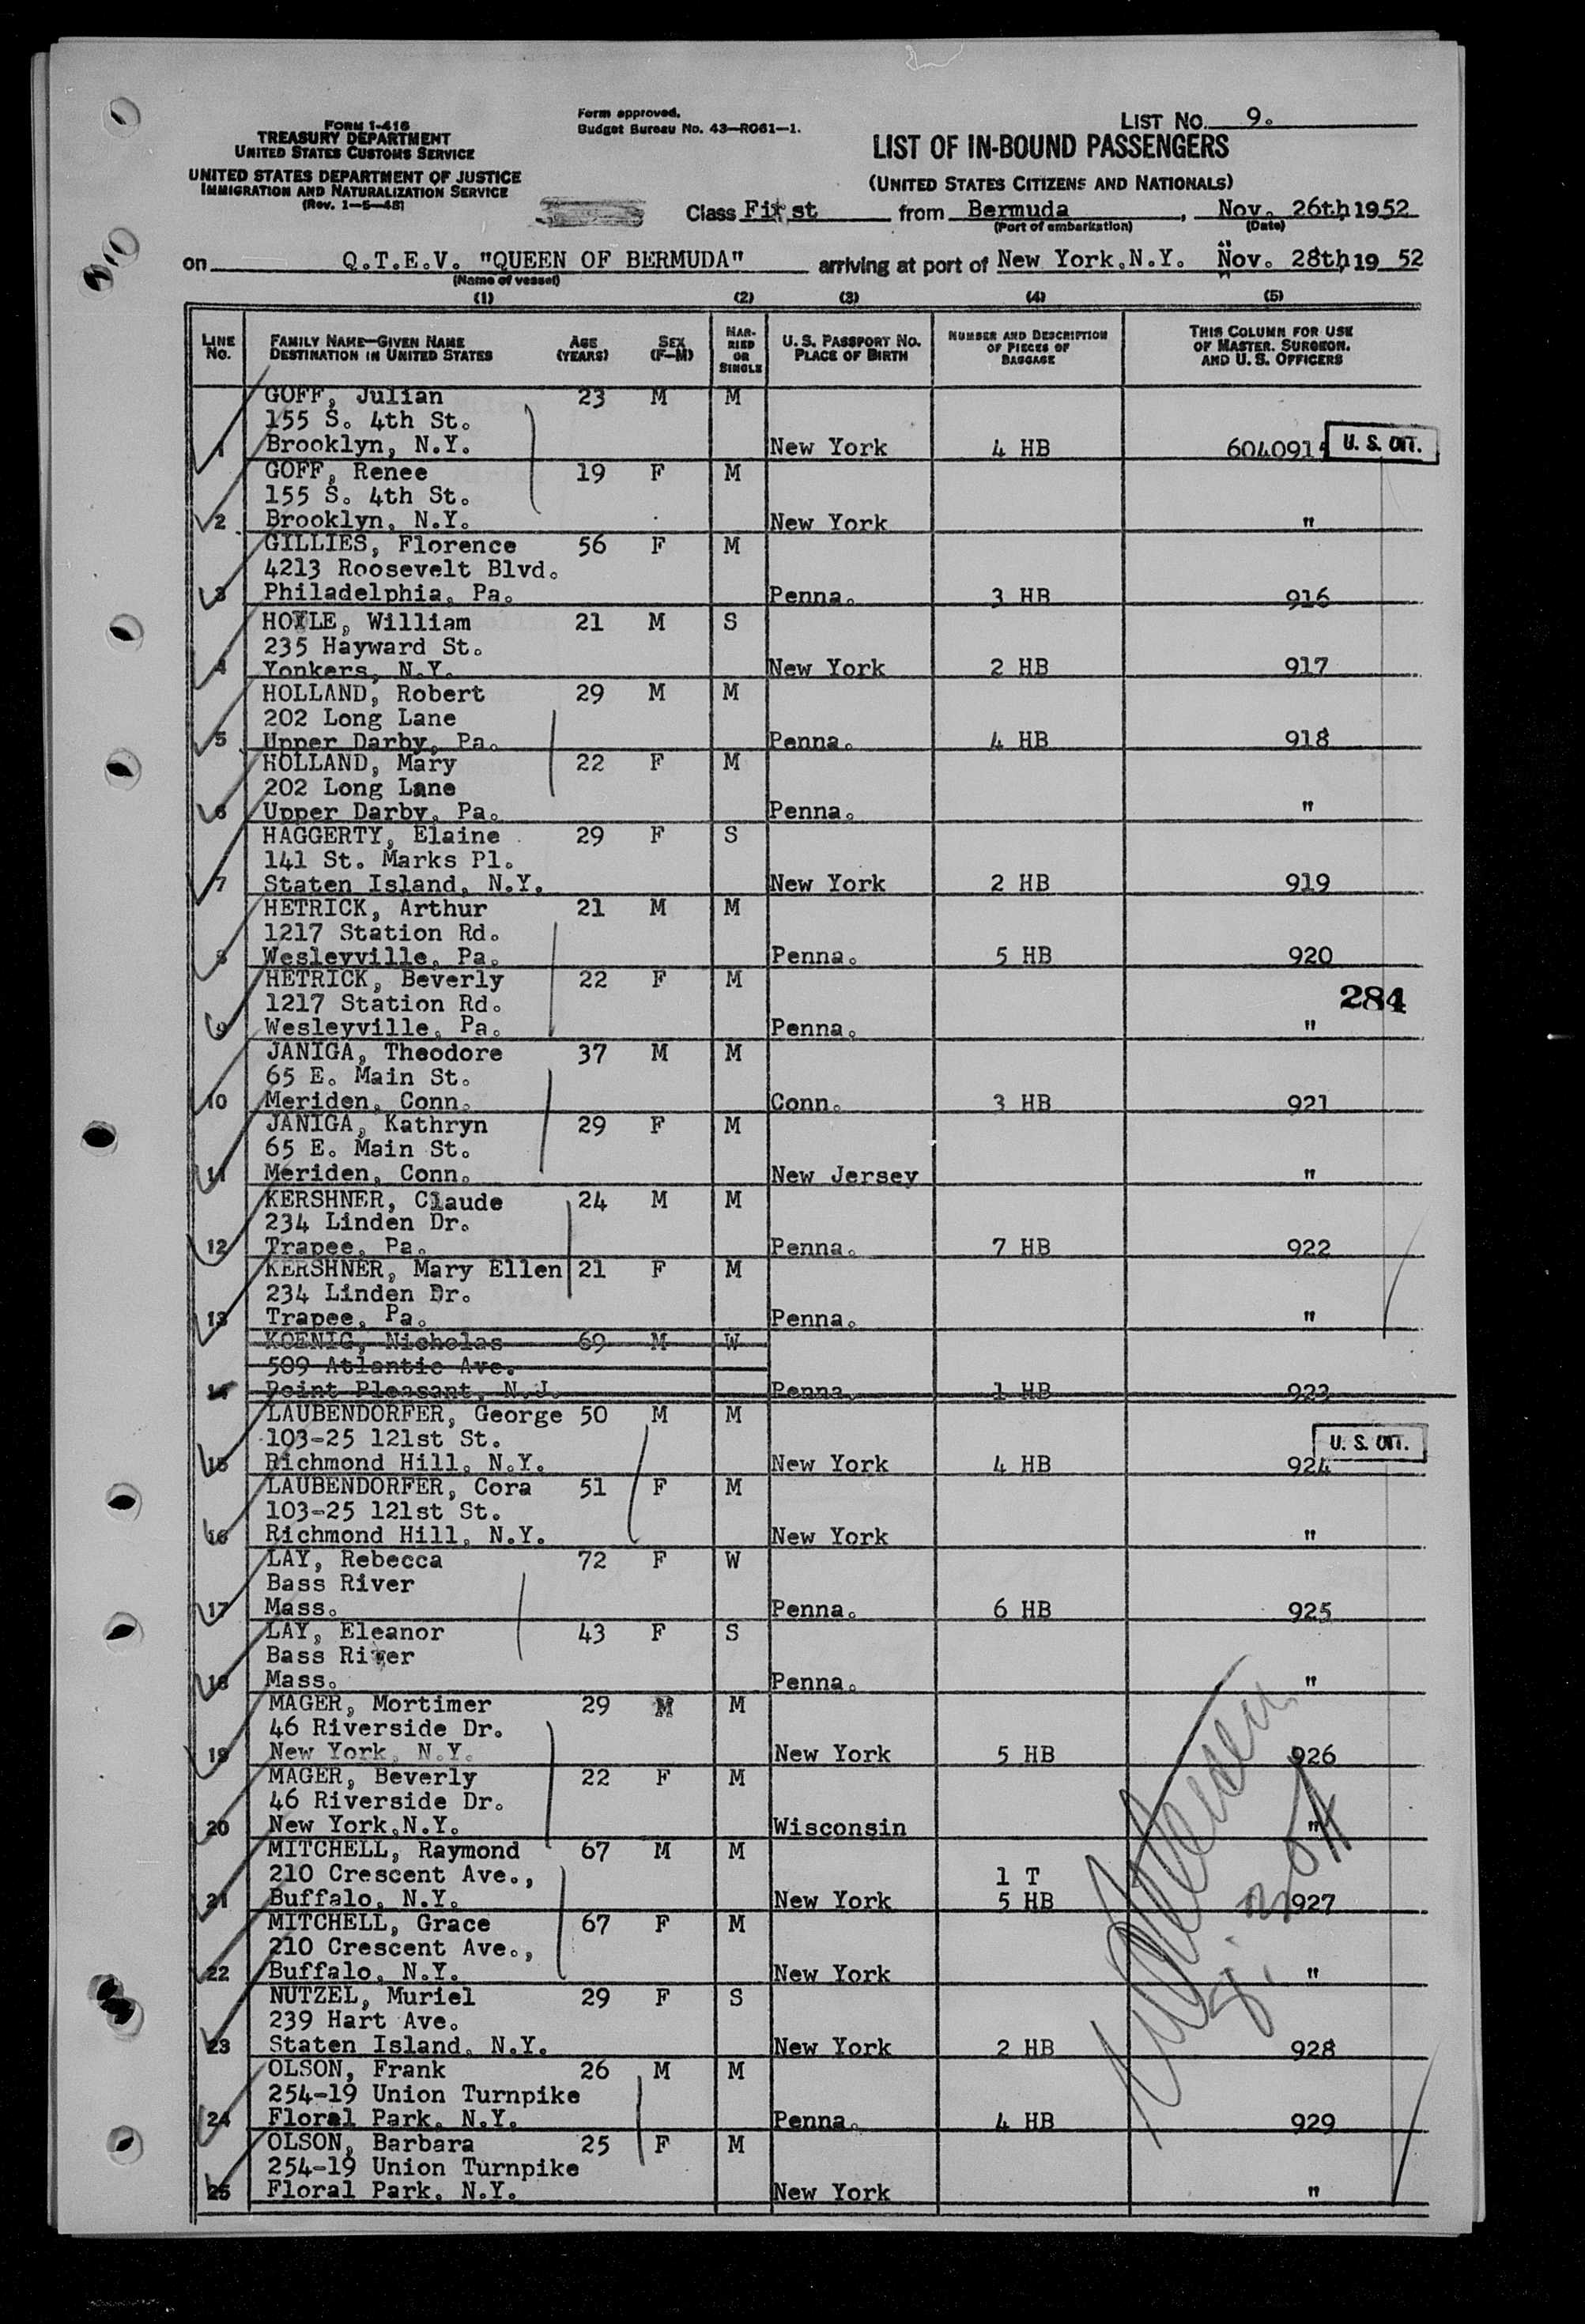 FORM I-416
TREASURY DEPARTMENT
UNITED STATES CUSTOMS SERVICE
UNITED STATES DEPARTMENT OF JUSTICE
IMMIGRATION AND NATURALIZATION SERVICE
(Rev. 1-5-48)
Form approved.
Budget Bureau No. 43-R061-1.
LIST NO. 9.
LIST OF IN-BOUND PASSENGERS
(UNITED STATES CITIZENS AND NATIONALS)
Class First from Bermuda, Nov. 26th, 1952
(Port of embarkation) (Date)
on Q.T.E.V. "QUEEN OF BERMUDA" arriving at port of New York.N.Y. Nov. 28th, 19 52
(Name of vessel)
(1) (2) (3) (4) (5)
LINE NO. FAMILY NAME—GIVEN NAME DESTINATION IN UNITED STATES AGE (YEARS) SEX (F-M) MARRIED OR SINGLE U. S. PASSPORT NO. PLACE OF BIRTH NUMBER AND DESCRIPTION OF PIECES OF BAGGAGE THIS COLUMN FOR USE OF MASTER, SURGEON, AND U. S. OFFICERS
GOFF, Julian 23 M M
155 S. 4th St.
1 Brooklyn, N.Y. New York 4 HB 604091 U. S. CIT.
GOFF, Renee 19 F M
155 S. 4th St.
2 Brooklyn, N.Y. New York "
GILLIES, Florence 56 F M
4213 Roosevelt Blvd.
3 Philadelphia, Pa. Penna. 3 HB 916
HOYLE, William 21 M S
235 Hayward St.
4 Yonkers, N.Y. New York 2 HB 917
HOLLAND, Robert 29 M M
202 Long Lane
5 Upper Darby, Pa. Penna. 4 HB 918
HOLLAND, Mary 22 F M
202 Long Lane
6 Upper Darby, Pa. Penna. "
HAGGERTY, Elaine 29 F S
141 St. Marks Pl.
7 Staten Island, N.Y. New York 2 HB 919
HETRICK, Arthur 21 M M
1217 Station Rd.
8 Wesleyville, Pa. Penna. 5 HB 920
HETRICK, Beverly 22 F M
1217 Station Rd. 284
9 Wesleyville, Pa. Penna. "
JANIGA, Theodore 37 M M
65 E. Main St.
10 Meriden, Conn. Conn. 3 HB 921
JANIGA, Kathryn 29 F M
65 E. Main St.
11 Meriden, Conn. New Jersey "
KERSHNER, Claude 24 M M
234 Linden Dr.
12 Trapee, Pa. Penna. 7 HB 922
KERSHNER, Mary Ellen 21 F M
234 Linden Dr.
13 Trapee, Pa. Penna. "
KOENIG, Nicholas 69 M W
509 Atlantic Ave.
14 Point Pleasant, N.J. Penna. 1 HB 923
LAUBENDORFER, George 50 M M
103-25 121st St.
15 Richmond Hill, N.Y. New York 4 HB 924 U. S. CIT.
LAUBENDORFER, Cora 51 F M
103-25 121st St.
16 Richmond Hill, N.Y. New York "
LAY, Rebecca 72 F W
Bass River
17 Mass. Penna. 6 HB 925
LAY, Eleanor 43 F S
Bass River
18 Mass. Penna. "
MAGER, Mortimer 29 M M
46 Riverside Dr.
19 New York, N.Y. New York 5 HB 926
MAGER, Beverly 22 F M
46 Riverside Dr.
20 New York,N.Y. Wisconsin "
MITCHELL, Raymond 67 M M
210 Crescent Ave., 1 T
21 Buffalo, N.Y. New York 5 HB 927
MITCHELL, Grace 67 F M
210 Crescent Ave.,
22 Buffalo, N.Y. New York "
NUTZEL, Muriel 29 F S
239 Hart Ave.
23 Staten Island, N.Y. New York 2 HB 928
OLSON, Frank 26 M M
254-19 Union Turnpike
24 Floral Park, N.Y. Penna. 4 HB 929
OLSON, Barbara 25 F M
254-19 Union Turnpike
25 Floral Park, N.Y. New York "